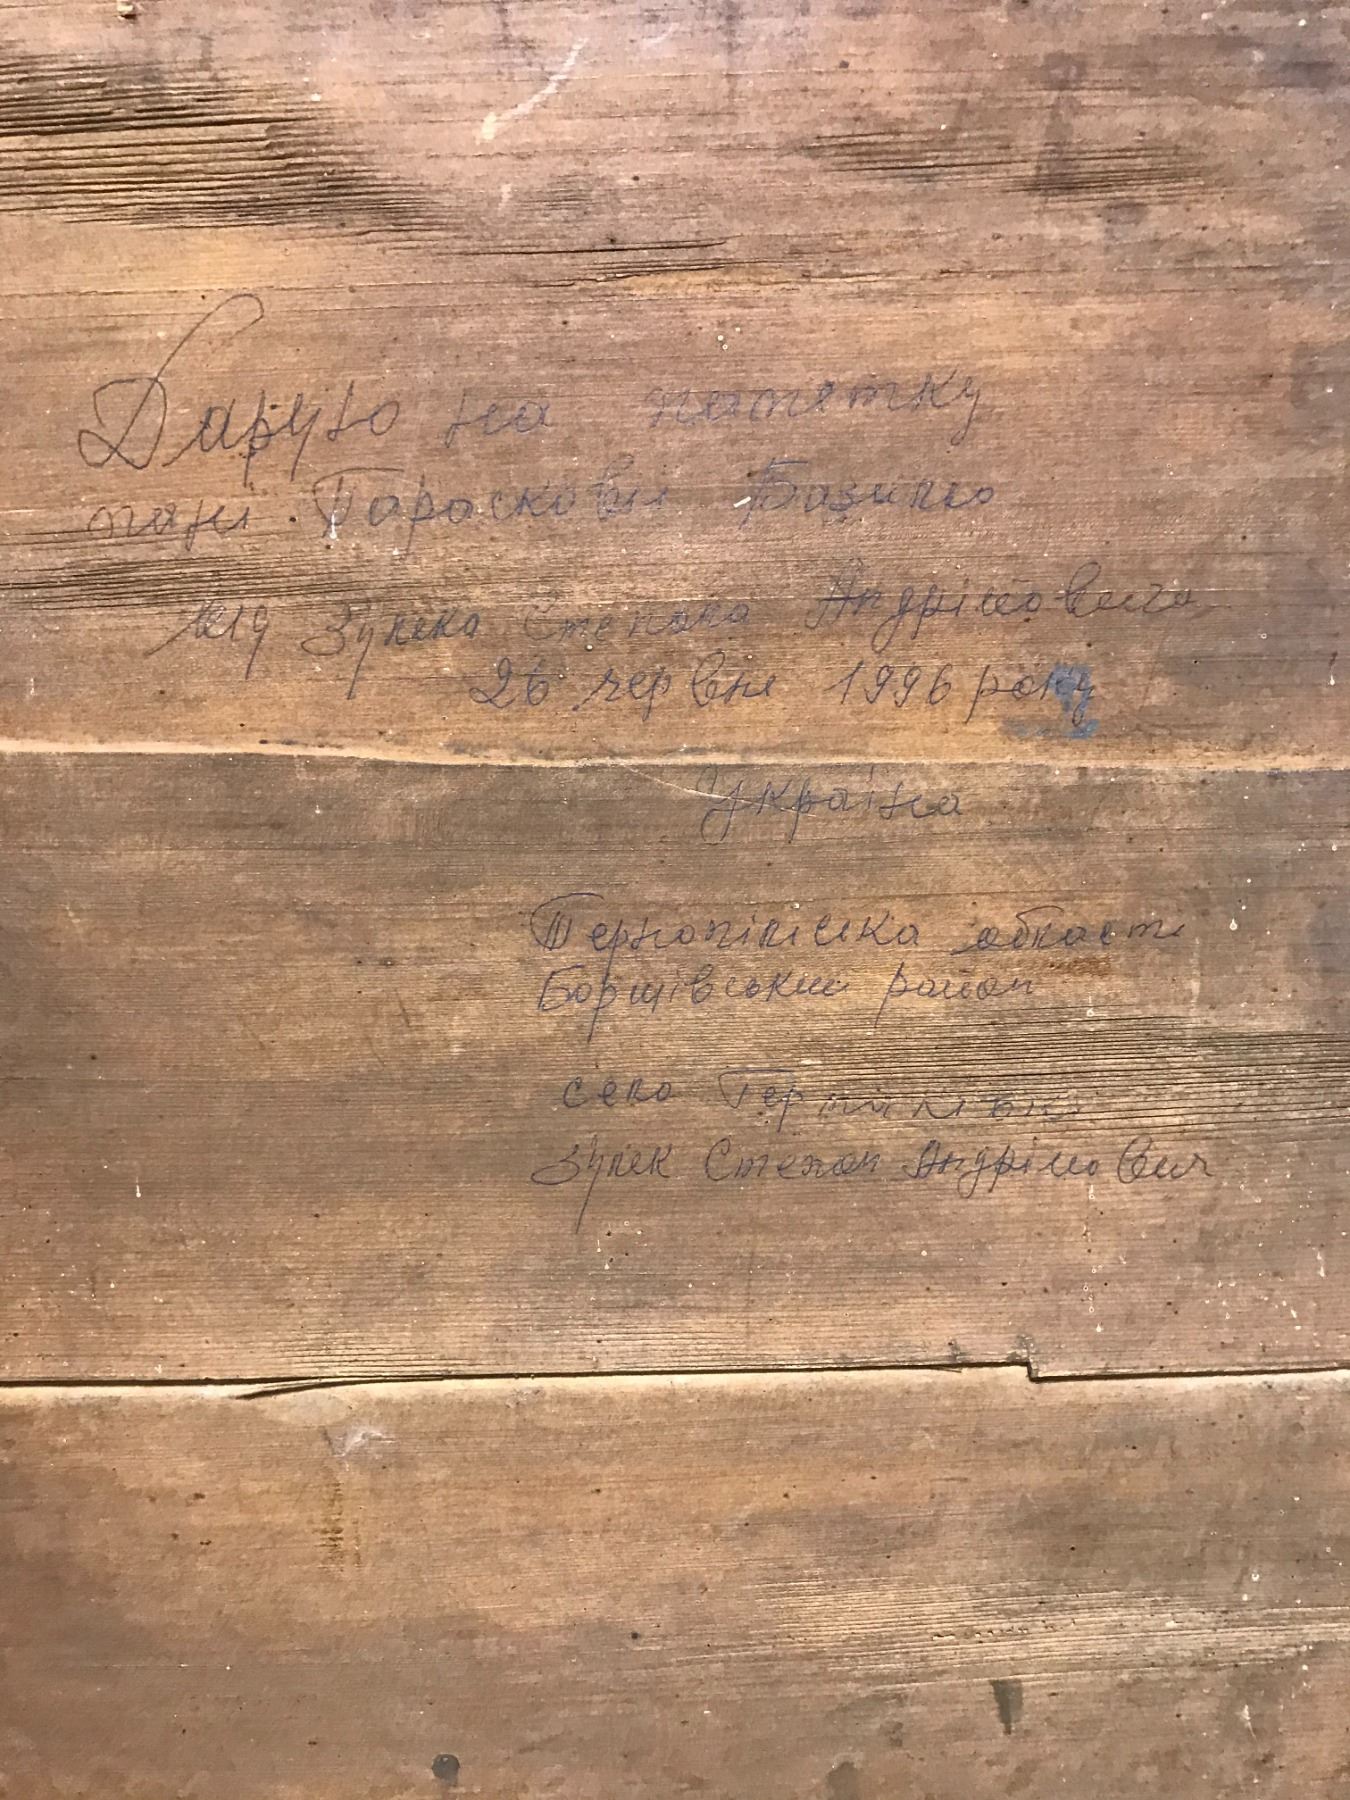 Дарую на пам'ятку
пані Парасковії Базилю
від Зупека Степана Андрійовича
26 червня 1996 року
Україна
Тернопільська область
Борщівський район
село
Степан Андрійович